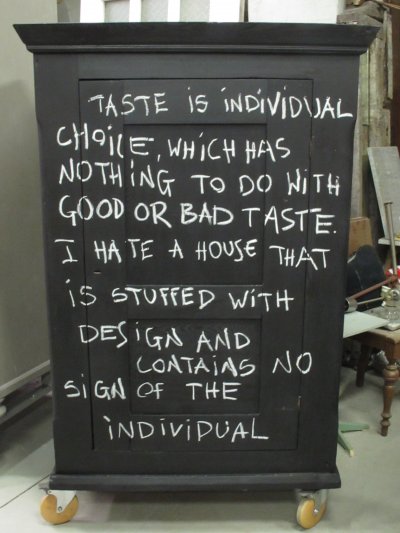 TASTE iS iNDiViDUAL
CHOiCE, WHiCH HAS
NOTHiNG TO DO WiTH
GOOD OR BAD TASTE.
I HATE A HOUSE THAT
iS STUFFED WiTH
DESiGN AND
CONTAiNS NO
SiGN OF THE
iNDiViDUAL